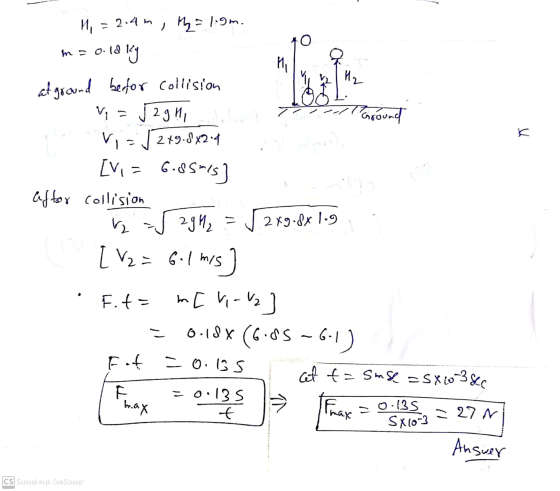 H₁ = 2.4 m , H₂ = 1.9m.
m = 0.18 kg
at ground befor collision
V₁ = √2gH₁
V₁ = √2×9.8×2.4
[V₁ = 6.85 m/s]
H₁ V₁ V₂ H₂
Ground
after collision
V₂ = √2gH₂ = √2×9.8×1.9
[V₂ = 6.1 m/s]
F.t = m[V₁-V₂]
= 0.18×(6.85 - 6.1)
F.t = 0.135
Fmax = 0.135/t
⇒
at t = 5mse = 5×10⁻³ sec
Fmax = 0.135/5×10⁻³ = 27 N
Answer
CS Scanned with CamScanner